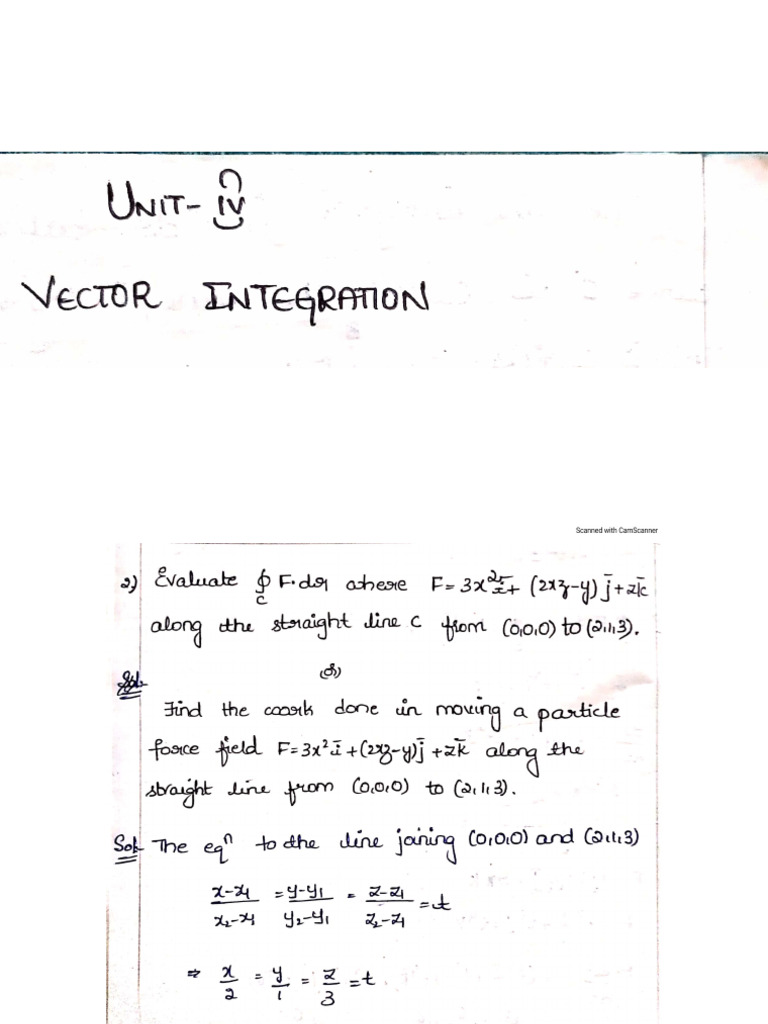 UNIT- IV
VECTOR INTEGRATION
Scanned with CamScanner
2) Evaluate ∮_C F·dr where F = 3x²i̅ + (2xz-y) j̅ + zk̅
along the straight line C from (0,0,0) to (2,1,3).
Sol.
(or)
Find the work done in moving a particle
force field F = 3x² i̅ + (2xz-y) j̅ + zk̅ along the
straight line from (0,0,0) to (2,1,3).
Sol- The eqⁿ to the line joining (0,0,0) and (2,1,3)
(x-x₁)/(x₂-x₁) = (y-y₁)/(y₂-y₁) = (z-z₁)/(z₂-z₁) = t
⇒ x/2 = y/1 = z/3 = t